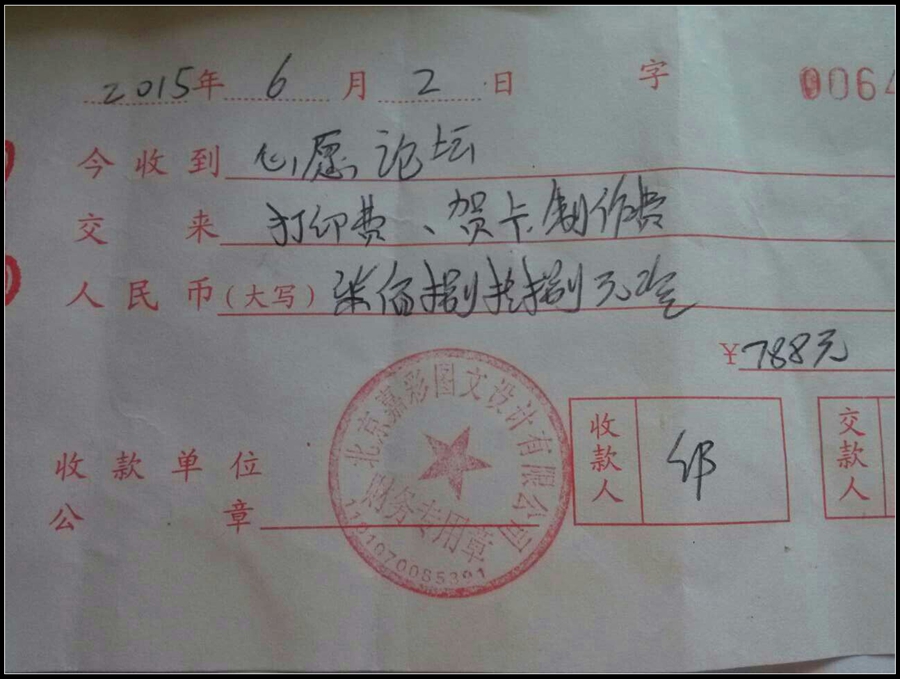 2015年 6 月 2 日 字 0064
今收到 心愿论坛
交来 打印费、贺卡制作费
人民币(大写) 柒佰捌拾捌元整
¥788元
北京嘉彩图文设计有限公司
财务专用章
1101070085391
收款单位
公章
收款人 邹
交款人